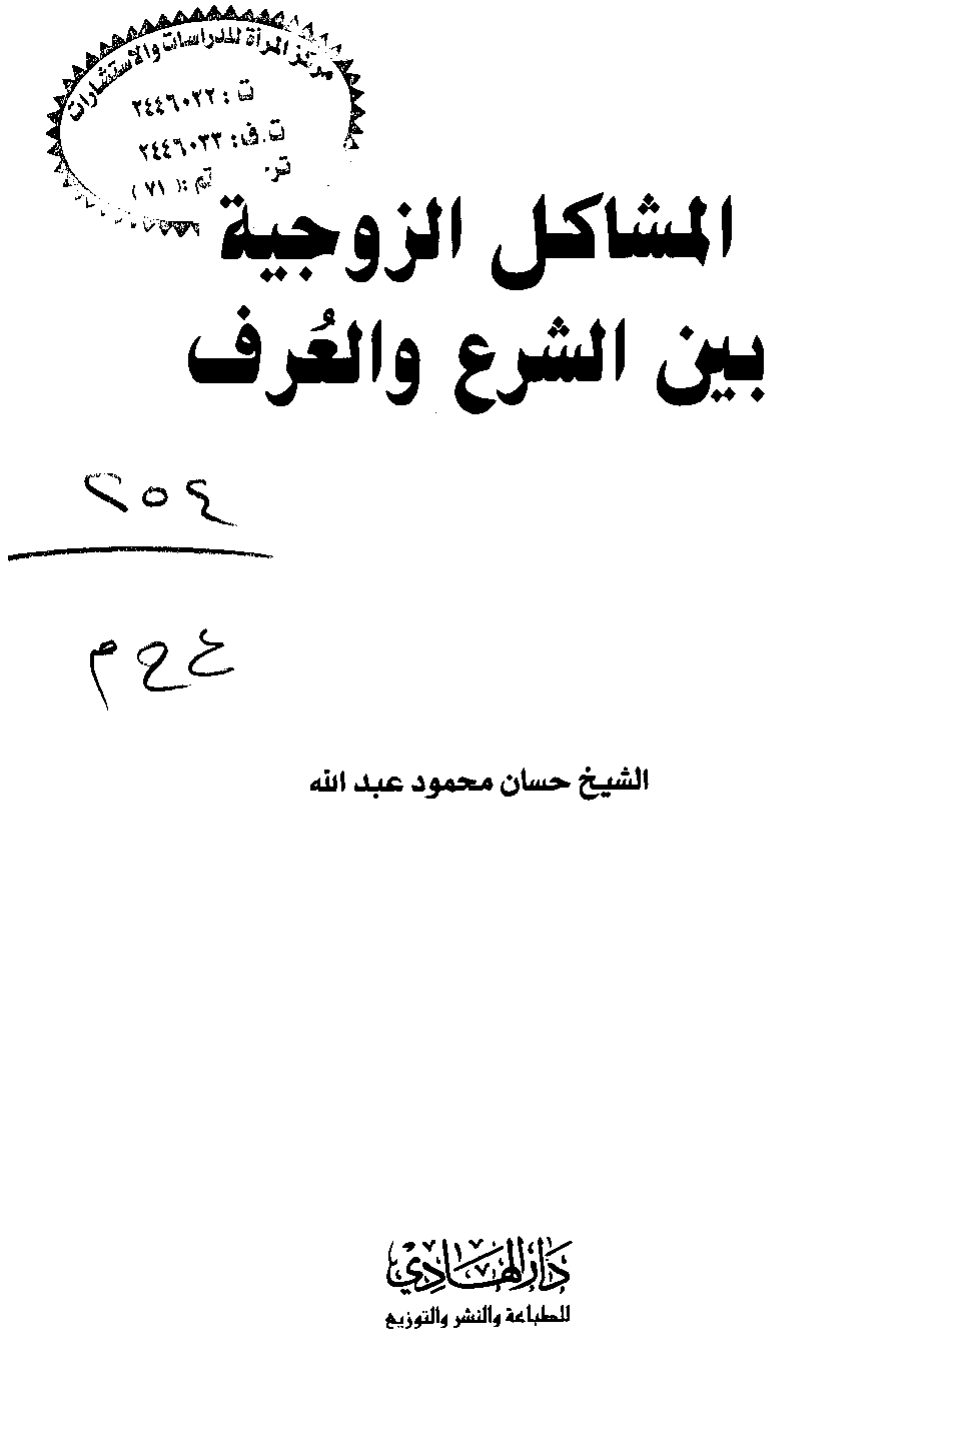 مركز المرأة للدراسات والاستشارات
ت : ٢٤٤٦٠٢٢
ت.ف: ٢٤٤٦٠٣٣
(٧١)
المشاكل الزوجية
بين الشرع والعُرف
٢٥٤
ع ح م
الشيخ حسان محمود عبد الله
دَارُ الهَادِي
للطباعة والنشر والتوزيع